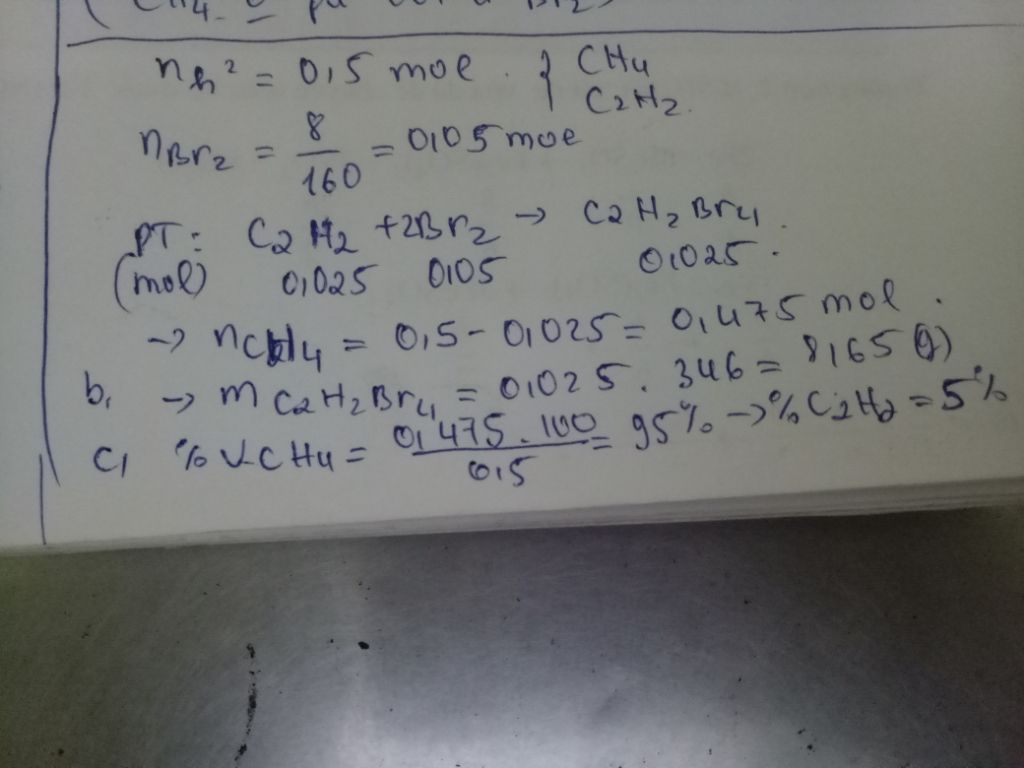 ( CH4
n h² = 0,5 mol . } CH4
C2H2.
nBr2 = 8/160 = 0,05 mol
PT: C2H2 + 2Br2 → C2H2Br4.
(mol) 0,025 0,05 0,025.
→ nCH4 = 0,5 - 0,025 = 0,475 mol.
b, → mC2H2Br4 = 0,025 . 346 = 8,65 (g)
c, %VCH4 = 0,475 . 100/0,5 = 95% → %C2H2 = 5%